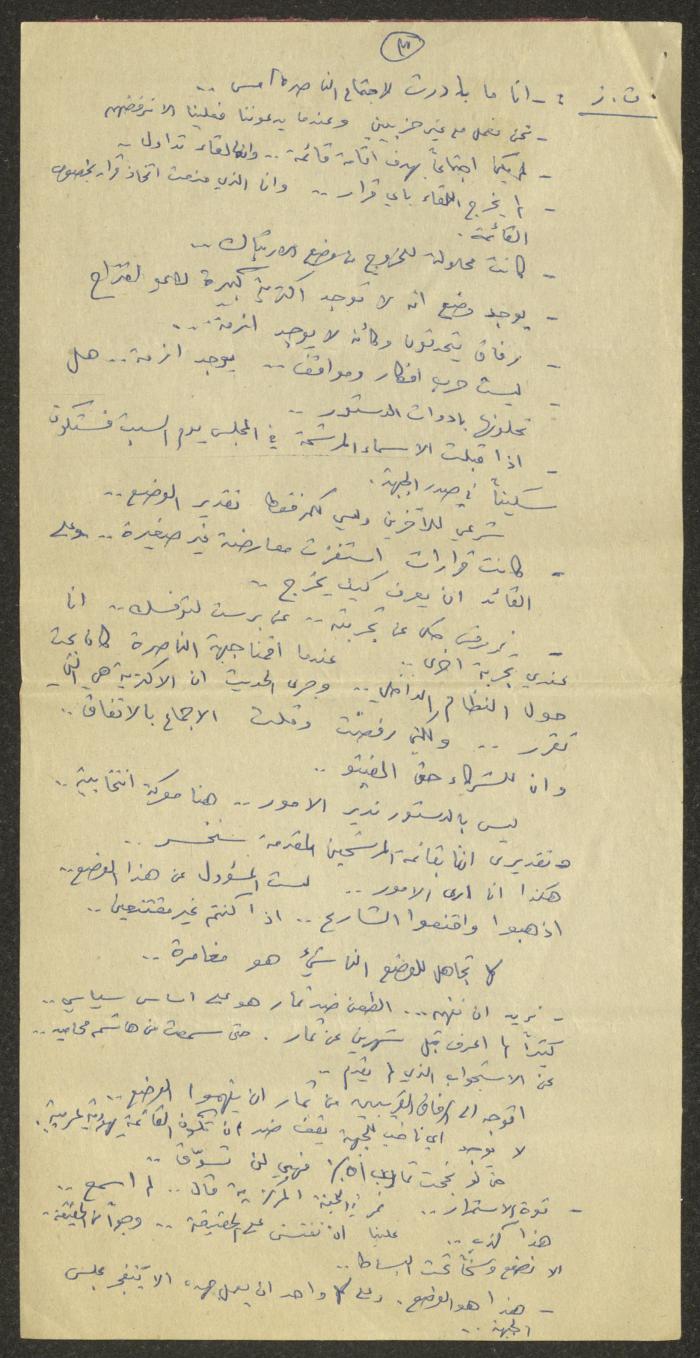 ٣
ت. ز : - انا ما بادرت لاجتماع الناصرة امس ..
- نحن نعمل مع غير حزبيين وعندما يدعوننا فعلينا الا نرفضهم
- لم يكن اجتماعاً بهدف اقامة قائمة .. وانما لقاء تداول ..
- لم يخرج اللقاء باي قرار .. وانا الذي منعت اتخاذ قرار بخصوص
القائمة.
- كانت محاولة للخروج من وضع الارتباك ..
- يوجد وضع انه لا توجد اكثرية كبيرة لاي اقتراح
- رفاق يتحدثون وكأنه لا يوجد ازمة ...
- ليست حرب افكار ومواقف .. يوجد ازمة .. هل
تحلونها بادوات الدستور ..
- اذا قبلت الاسماء المرشحة في المجلس يوم السبت فستكون
سكيناً في صدر الجبهة.
شرعي للآخرين وليس لكم فقط تقدير الوضع ..
- كانت قرارات استفزت معارضة غير صغيرة .. وعلى
القائد ان يعرف كيف يخرج ..
- حكى عن تجربته .. عن برست ليتوفسك .. انا
عندي تجربة اخرى .. عندما اقمنا جبهة الناصرة كان بحث
حول النظام الداخلي .. وجرى الحديث ان الاكثرية هي التي
تقرر .. ولكني رفضت وقلت الاجماع بالاتفاق ..
وان للشركاء حق الفيتو ..
ليس بالدستور ندير الامور .. هنا معركة انتخابية ..
تقديري اننا بقائمة المرشحين المقدمة سنخسر ..
هكذا انا ارى الامور .. لست المسؤول عن هذا الوضع ..
اذهبوا واقنعوا الشارع .. اذا كنتم غير مقتنعين ..
كل تجاهل للوضع الناشئ هو مغامرة ..
- نريد ان نفهم ... الطعن ضد تمار هو على اساس سياسي ..
كثيراً لم اعرف قبل شهرين عن تمار . حتى سمعت من هاشم محاميد ..
عن الاستجواب الذي لم يقدم ..
اتوجه الى الرفاق القريبين من تمار ان يفهموا الوضع ..
لا يوجد اي ناخب للجبهة يقف ضد ان تكون القائمة يهودية عربية.
حتى لو نجحت تمار ب ٥١٪ فهي لن تسوّق ..
- قوة الاستمرار .. في اللجنة المركزية قال .. لم اسمع ..
هذا كذب .. علينا ان نفتش على الحقيقة .. الحقيقة ..
الا نضع وسخاً تحت البساط ..
- هذا هو الوضع . وعلى كل واحد ان يعمل جهده الا ينفجر مجلس
الجبهة ..